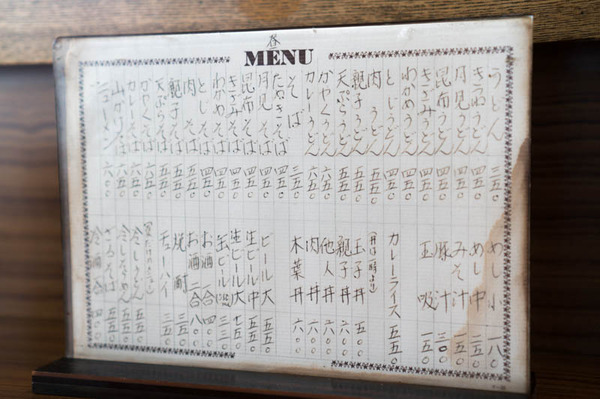 昼
MENU
うどん 三五〇
きつねうどん 四五〇
月見うどん 四五〇
昆布うどん 四五〇
きざみうどん 四五〇
わかめうどん 四五〇
とじうどん 四五〇
肉うどん 五五〇
天ぷらうどん 五五〇
親子うどん 五五〇
かやくうどん 六五〇
カレーうどん 六五〇
そば 三五〇
たぬきそば 四五〇
月見そば 四五〇
昆布そば 四五〇
きざみそば 四五〇
わかめそば 四五〇
とじそば 四五〇
肉そば 五五〇
親子そば 五五〇
天ぷらそば 五五〇
かやくそば 六五〇
カレーそば 六五〇
山かけそば 六五〇
めし小 一八〇
めし中
みそ汁 一五〇
豚汁 三〇〇
玉吸 一五〇
カレーライス 五五〇
玉子丼 五〇〇
親子丼 六〇〇
他人丼 六〇〇
肉丼 六〇〇
木葉丼 六〇〇
ビール大 五五〇
生ビール中 五五〇
生ビール大 七五〇
缶ビール 三五〇
お酒一合 四〇〇
お酒二合 八〇〇
焼酎 三五〇
チューハイ 三五〇
冷しうどん 五五〇
冷しそーめん 五五〇
ざるそば 五五〇
冷酒 四〇〇